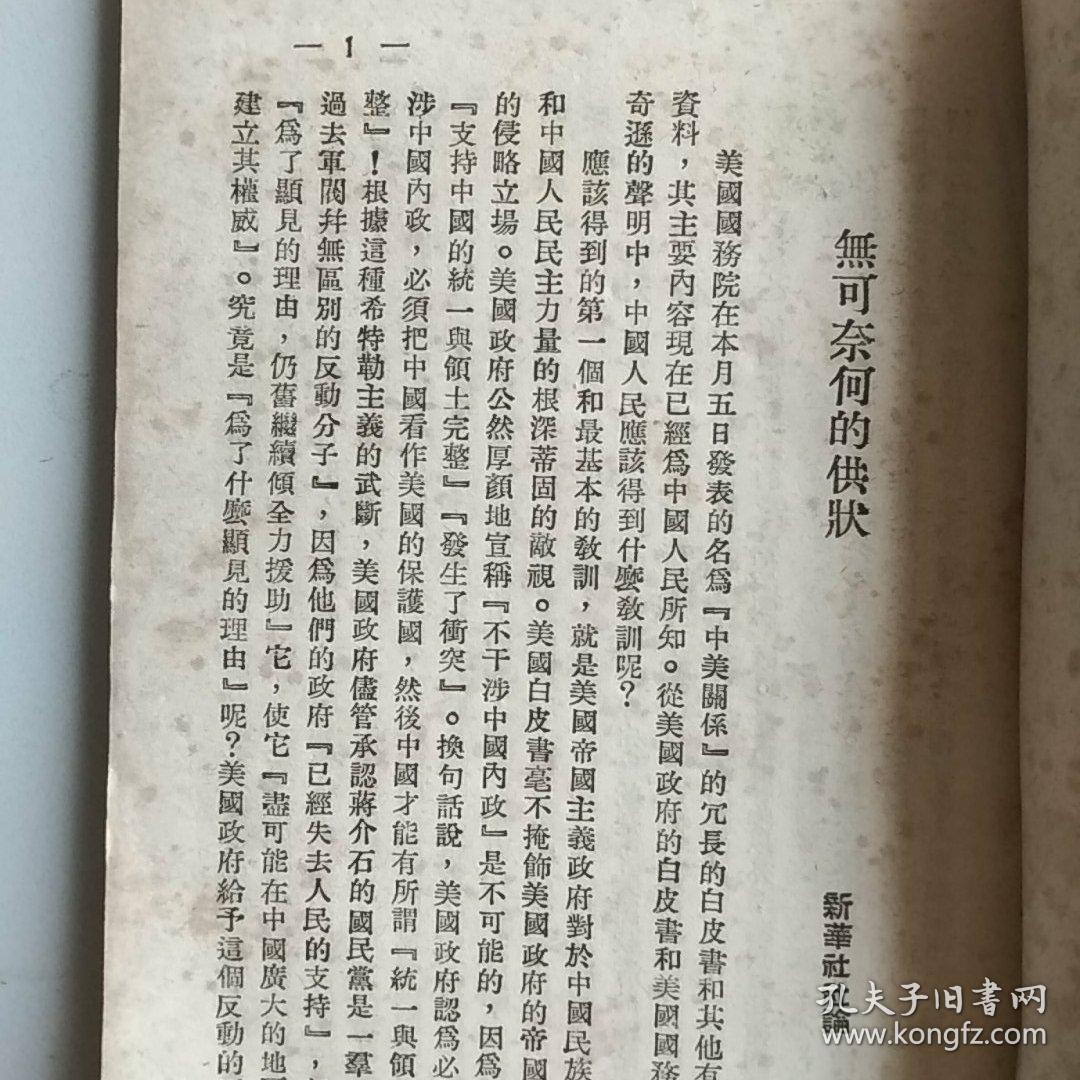 — 1 —
無可奈何的供狀
新華社社論
美國國務院在本月五日發表的名爲『中美關係』的冗長的白皮書和其他有
資料，其主要內容現在已經爲中國人民所知。從美國政府的白皮書和美國國務
奇遜的聲明中，中國人民應該得到什麼教訓呢？
應該得到的第一個和最基本的教訓，就是美國帝國主義政府對於中國民族
和中國人民民主力量的根深蒂固的敵視。美國白皮書毫不掩飾美國政府的帝國
的侵略立場。美國政府公然厚顏地宣稱『不干涉中國內政』是不可能的，因爲
『支持中國的統一與領土完整』『發生了衝突』。換句話說，美國政府認爲必
涉中國內政，必須把中國看作美國的保護國，然後中國才能有所謂『統一與領
整』！根據這種希特勒主義的武斷，美國政府儘管承認蔣介石的國民黨是一羣
過去軍閥幷無區別的反動分子』，因爲他們的政府『已經失去人民的支持』，
『爲了顯見的理由，仍舊繼續傾全力援助』它，使它『盡可能在中國廣大的地
建立其權威』。究竟是『爲了什麼顯見的理由』呢？美國政府給予這個反動的
孔夫子旧书网
www.kongfz.com